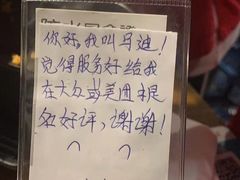 你好,我叫马迪!
觉得服务好给我
在大众或美团来
个好评,谢谢!